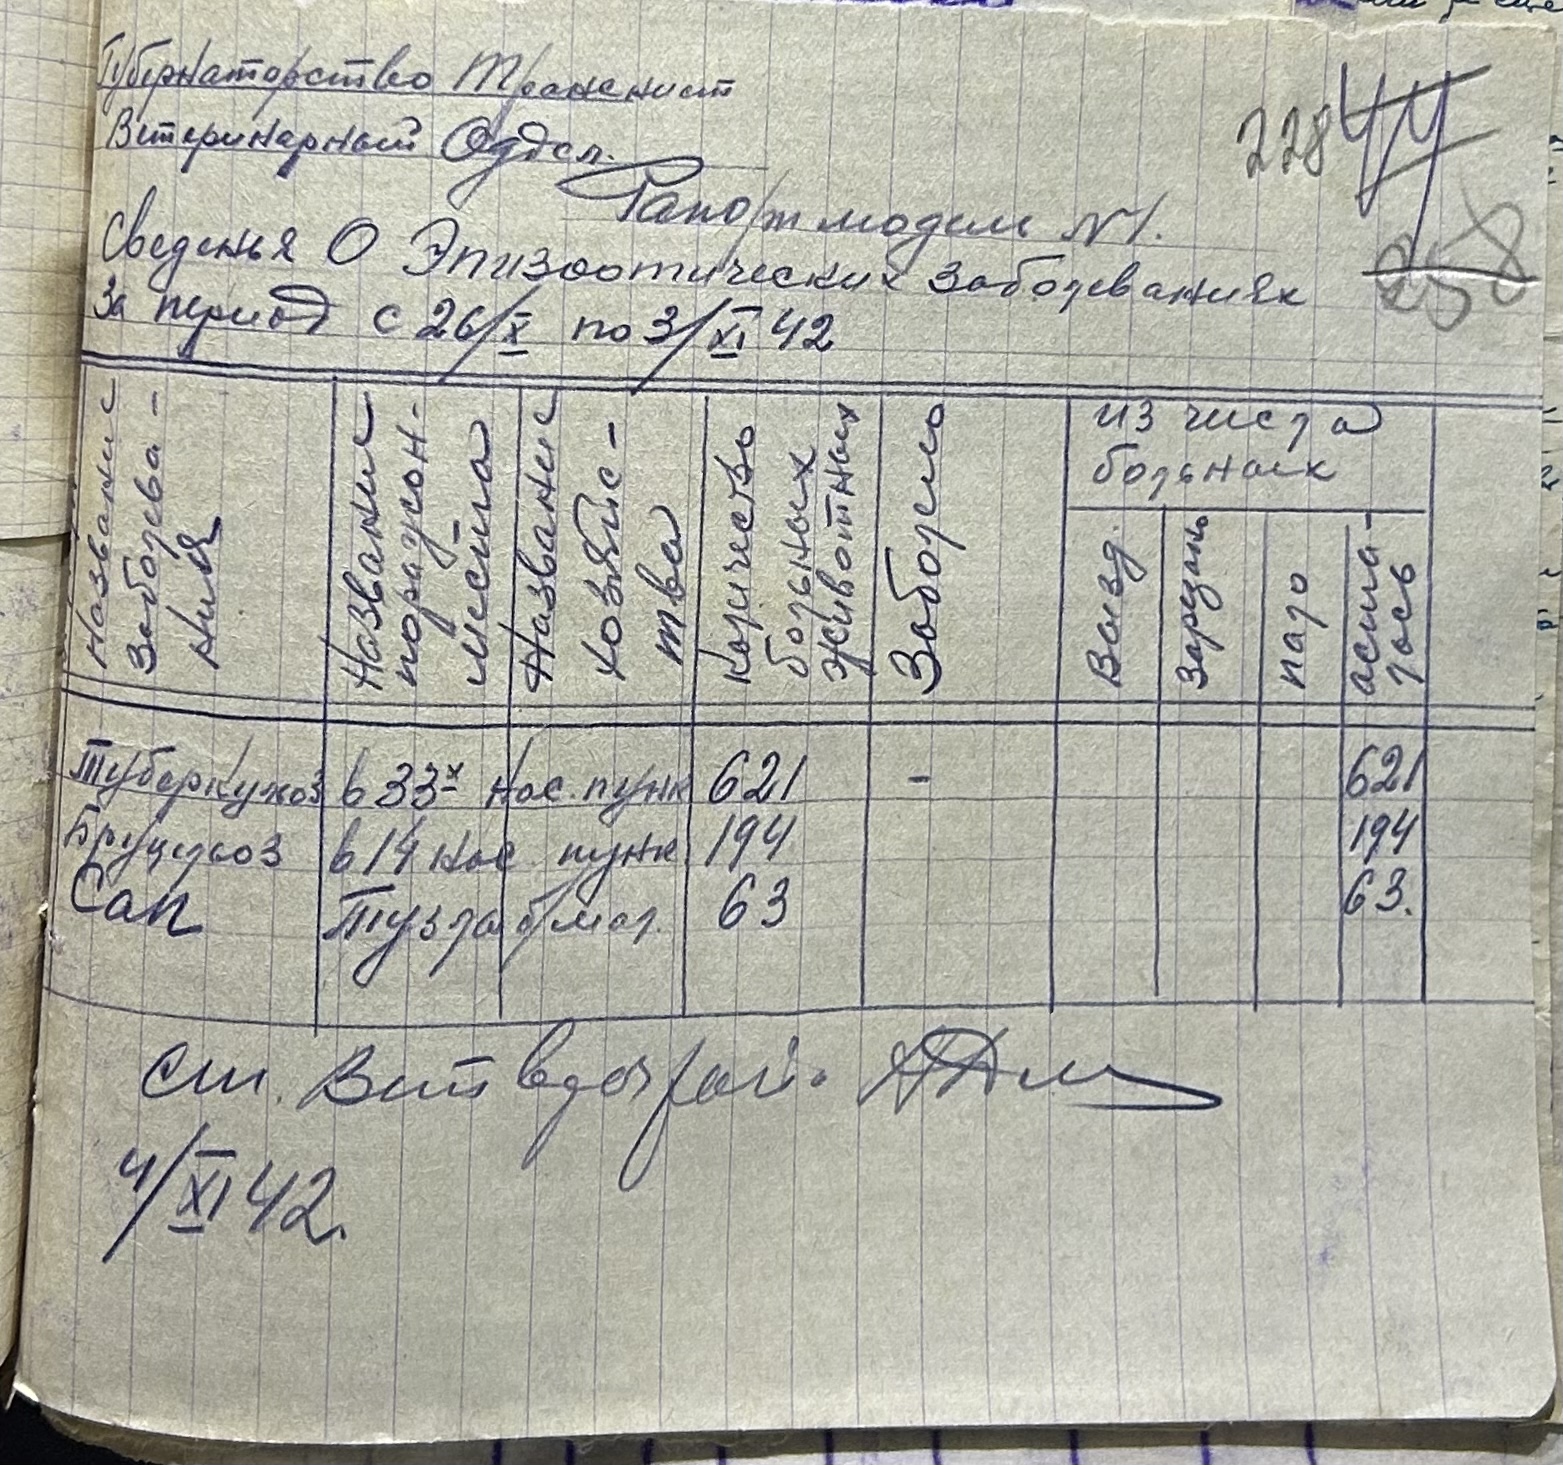 Губернаторство Транснист
Ветеринарный Оддел.
Рапорт модели №1.
228
258
Сведенья О Эпизоотических Заболеваниях
За период с 26/X по 3/XI 42
Название Заболева-ния | Название поражон-места | Название хозяйс-тва | Количество больных животных | Заболело | из числа больных
Визд. | Зарезань | пало | асталось
Туберкулоз | в 33х нас. пунк | 621 | - | 621
Бруцулоз | в 14 нас пунк | 194 | 194
Сап | Тузла | 63 | 63.
ст. Вет
4/XI 42.